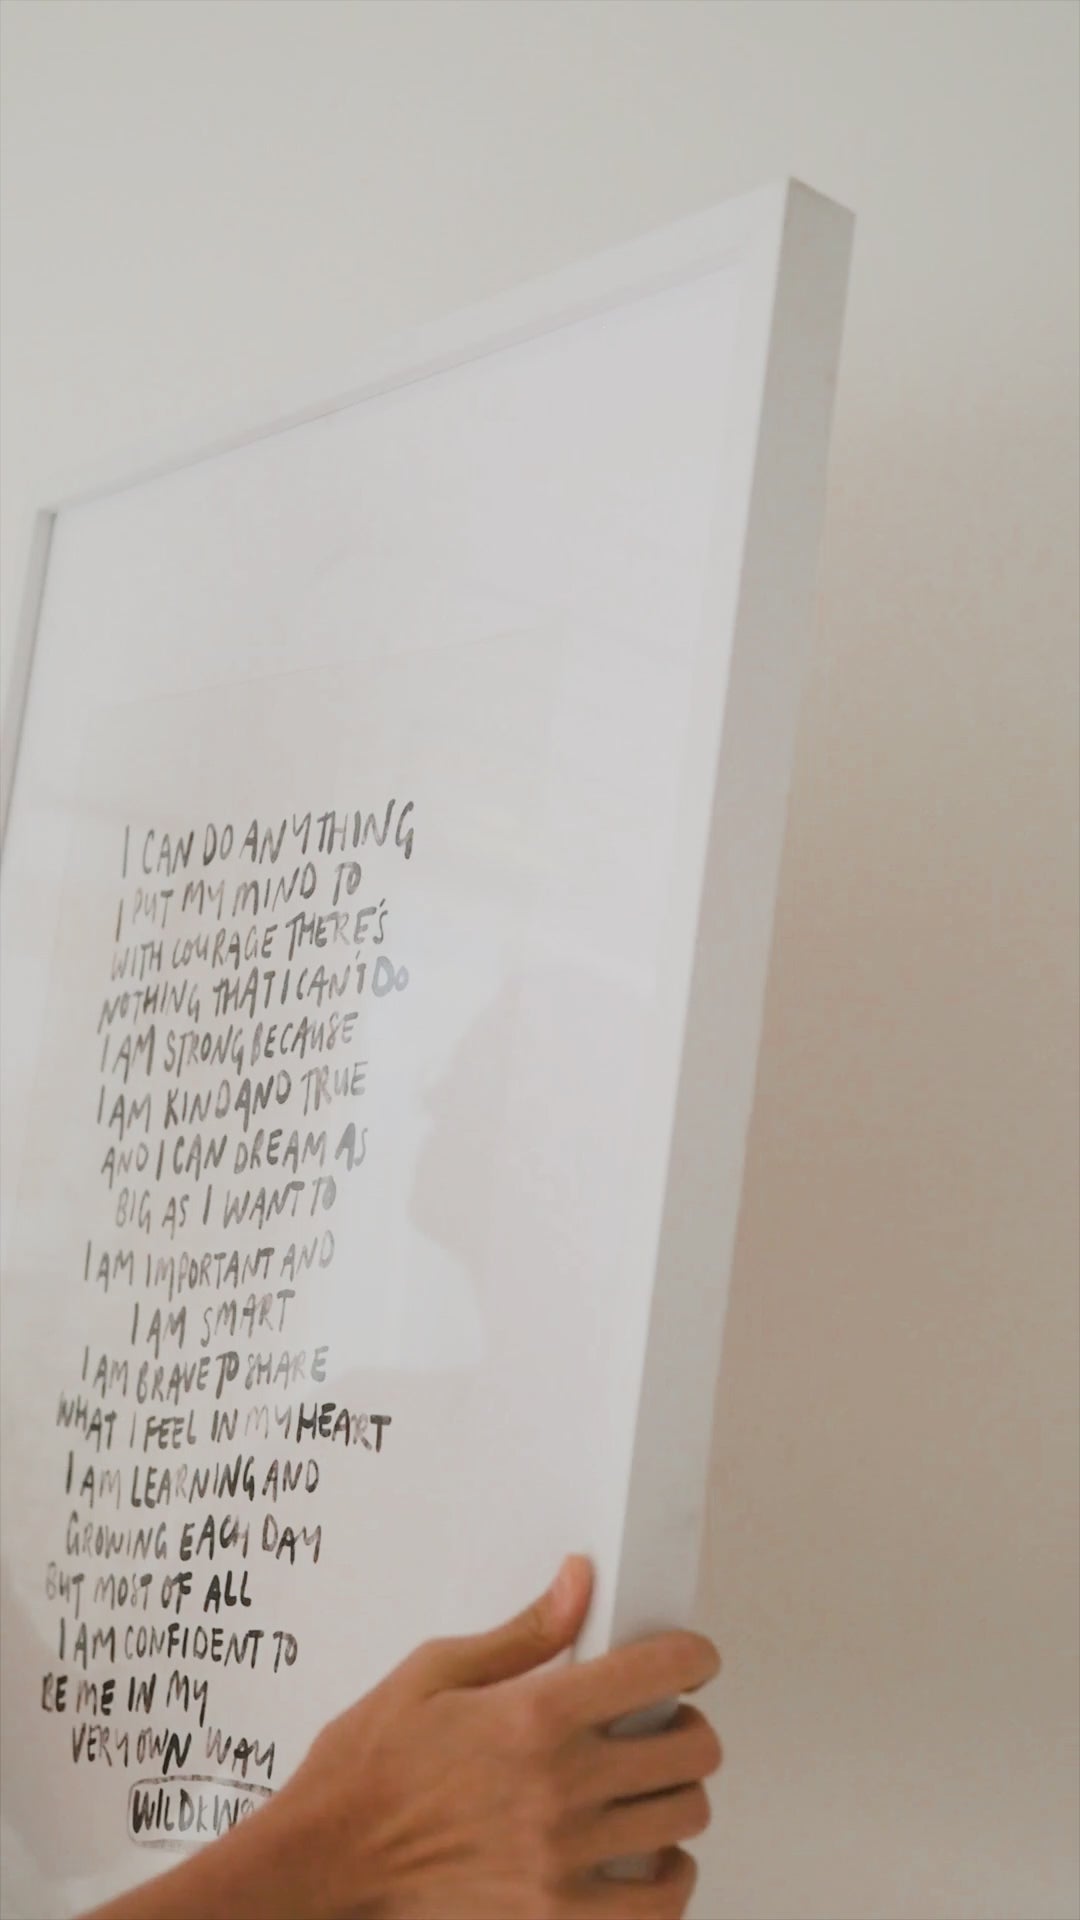 I CAN DO ANYTHING
I PUT MY MIND TO
WITH COURAGE THERE'S
NOTHING THAT I CAN'T DO
I AM STRONG BECAUSE
I AM KIND AND TRUE
AND I CAN DREAM AS
BIG AS I WANT TO
I AM IMPORTANT AND
I AM SMART
I AM BRAVE TO SHARE
WHAT I FEEL IN MY HEART
I AM LEARNING AND
GROWING EACH DAY
BUT MOST OF ALL
I AM CONFIDENT TO
BE ME IN MY
VERY OWN WAY